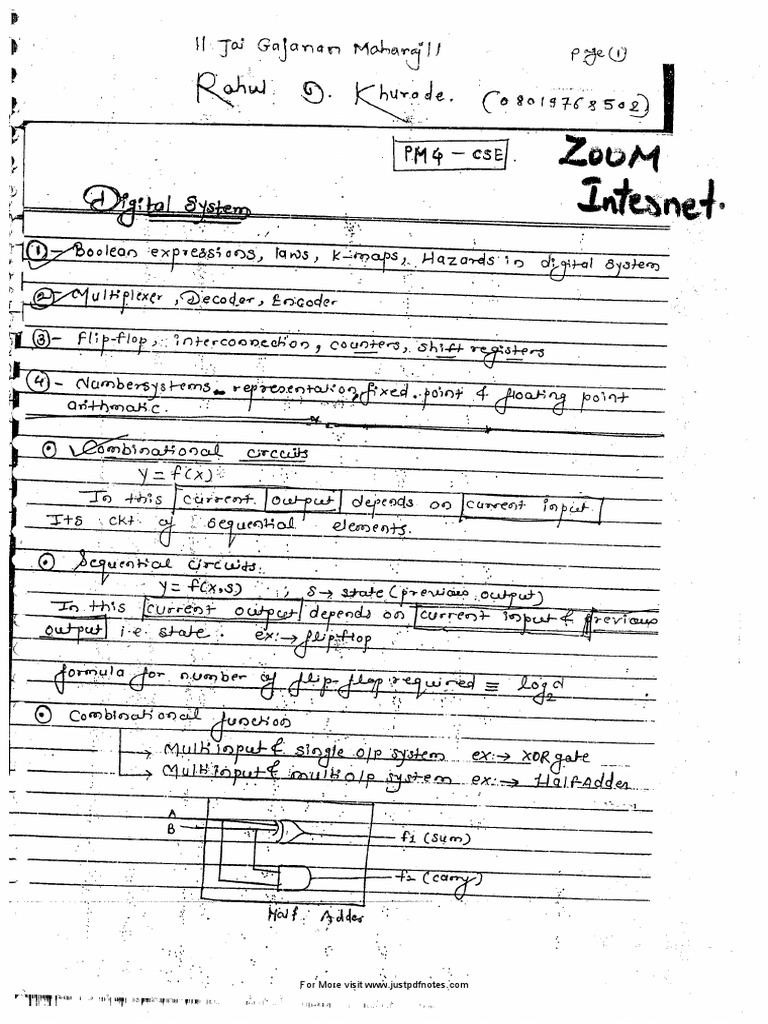 || Jai Gajanan Maharaj ||
Page (1)
Rahul D. Khurade. (08019768502)
PM4 - CSE
ZOOM
Intesnet.
Digital System
① - Boolean expressions, laws, K-maps, Hazards in digital system
② - Multiplexer, Decoder, Encoder
③ - flip-flop, interconnection, counters, shift registers
④ - Numbersystems - representation, fixed. point & floating point
arithmatic.
⊙ Combinational circuits
y = f(x)
In this current output depends on current input.
Its ckt of sequential elements.
⊙ Sequential circuits
y = f(x,s) ; s → state (previous output)
In this current output depends on current input & previous
output i.e state. ex:→ flipflop
formula for number of flip-flop required ≡ log₂d
⊙ Combinational function
→ Multi input & single o/p system ex:→ XOR gate
→ Multi input & multi o/p system ex:→ Half-Adder
A
B
f1 (sum)
f2 (carry)
Half Adder
For More visit www.justpdfnotes.com